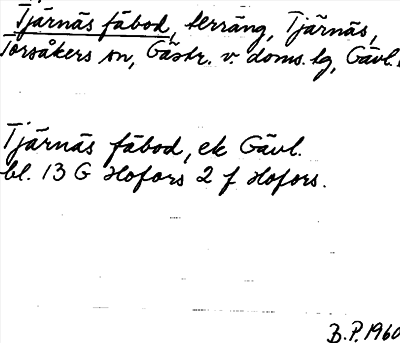 Tjärnäs fäbod, terräng, Tjärnäs,
Torsåkers sn, Gästr. v. doms.tg, Gävl.
Tjärnäs fäbod, ek Gävl.
bl. 13 G Hofors 2 f Hofors.
B.P. 1960